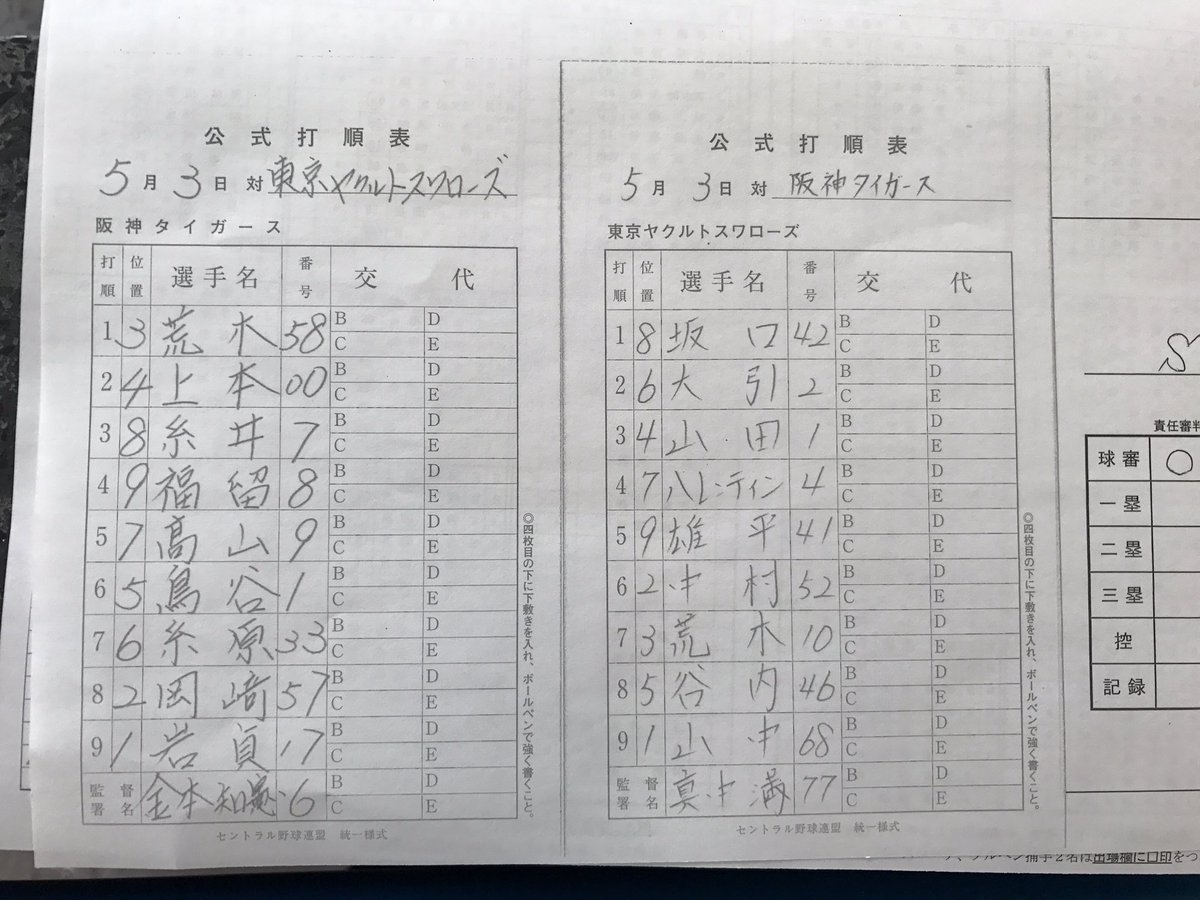 公式打順表
5月3日 対 東京ヤクルトスワローズ
阪神タイガース
打順 位置 選手名 番号 交代
1 3 荒木 58 B C D E
2 4 上本 00 B C D E
3 8 糸井 7 B C D E
4 9 福留 8 B C D E
5 7 高山 9 B C D E
6 5 鳥谷 1 B C D E
7 6 糸原 33 B C D E
8 2 岡﨑 57 B C D E
9 1 岩貞 17 B C D E
監督署名 金本知憲 6 B C D E
◎四枚目の下に下敷きを入れ、ボールペンで強く書くこと。
セントラル野球連盟 統一様式
公式打順表
5月3日 対 阪神タイガース
東京ヤクルトスワローズ
打順 位置 選手名 番号 交代
1 8 坂口 42 B C D E
2 6 大引 2 B C D E
3 4 山田 1 B C D E
4 7 バレンティン 4 B C D E
5 9 雄平 41 B C D E
6 2 中村 52 B C D E
7 3 荒木 10 B C D E
8 5 谷内 46 B C D E
9 1 山中 68 B C D E
監督署名 真中満 77 B C D E
◎四枚目の下に下敷きを入れ、ボールペンで強く書くこと。
セントラル野球連盟 統一様式
責任審判
球審 ○
一塁
二塁
三塁
控
記録
捕手2名は出場欄に□印をつ